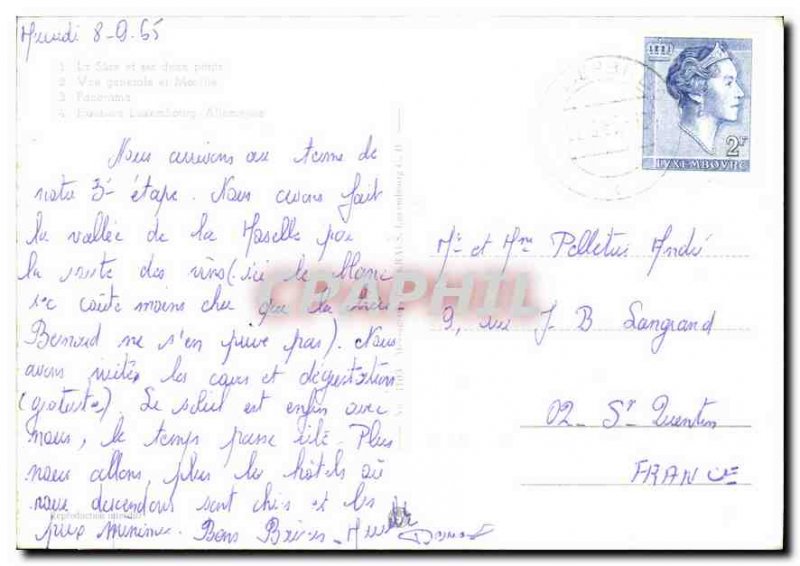 8-9.65
1 La Sûre et ses deux ponts
2 Vue générale et Moselle
3 Panorama
4 Luxembourg Allemagne
Nous arrivons au terme de
notre 3e étape. Nous avons fait
la vallée de la Moselle par
la route des vins (ici le blanc
sec coûte moins cher que la bière
Bernard ne s'en prive pas). Nous
avons visité les caves et dégustation
(gratuite). Le soleil est enfin avec
nous, le temps passe vite. Plus
nous allons, plus les hôtels où
nous descendons sont chics et les
prix minimes. Bons Baisers -
Reproduction interdite
CPAPHIL
2F
LVXEMBOVRG
Mr et Mme Pelletier André
9, rue J B Langrand
02 - St Quentin
FRANCE